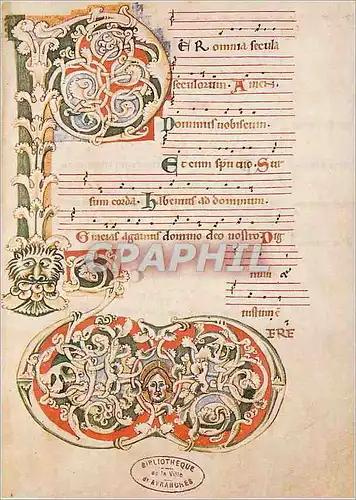 PER omnia secula
seculorum. Amen.
Dominus vobiscum.
Et cum spu tuo. Sur
sum corda. Habemus ad dominum.
Gracias agamus domino deo nostro. Dig
num
iustum ē
VERE
CARAPHIL
BIBLIOTHEQUE
de la Ville
d'AVRANCHES